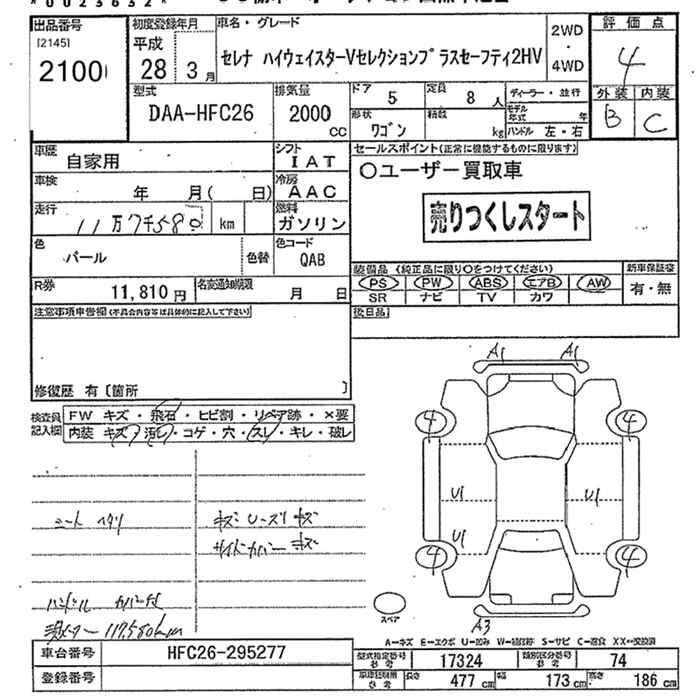 *0023632*
出品番号
[2145]
2100
初度登録年月
平成
28 3月
車名・グレード
セレナ ハイウェイスターVセレクションプラスセーフティ2HV
2WD
・
4WD
評価点
4
外装 内装
B C
型式
DAA-HFC26
排気量
2000
CC
ドア 5
定員 8人
ディーラー・並行
形状 ワゴン
積載 kg
モデル年式 年
ハンドル 左・右
車歴 自家用
シフト IAT
セールスポイント(正常に機能するものに限ります)
○ユーザー買取車
売りつくしスタート
車検 年 月( 日)
冷房 AAC
走行 11万7千580 km
燃料 ガソリン
色 パール
色替
色コード QAB
装備品(純正品に限り○をつけてください)
新車保証書
PS PW ABS エアB AW
有・無
SR ナビ TV カワ
R券 11,810円
名変通知期限 月 日
注意事項申告欄(不具合内容等は具体的に記入して下さい)
後日品
修復歴 有〔箇所 〕
検査員記入欄
FW キズ・飛石・ヒビ割・リペア跡・×要
内装 キズ・汚レ・コゲ・穴・スレ・キレ・破レ
A1 A1
4 4
U1 U1
U1
4 4
シート ヘタリ
キズ Uーズリ キズ
サイドカバー キズ
ハンドル カバー付
119580km
スペア
A3
A-キズ E-エクボ U-凹み W-補修跡 S-サビ C-腐食 XX-交換済
車台番号 HFC26-295277
型式指定番号 参考 17324
類別区分番号 参考 74
登録番号
長さ 477cm
幅 173cm
高さ 186cm